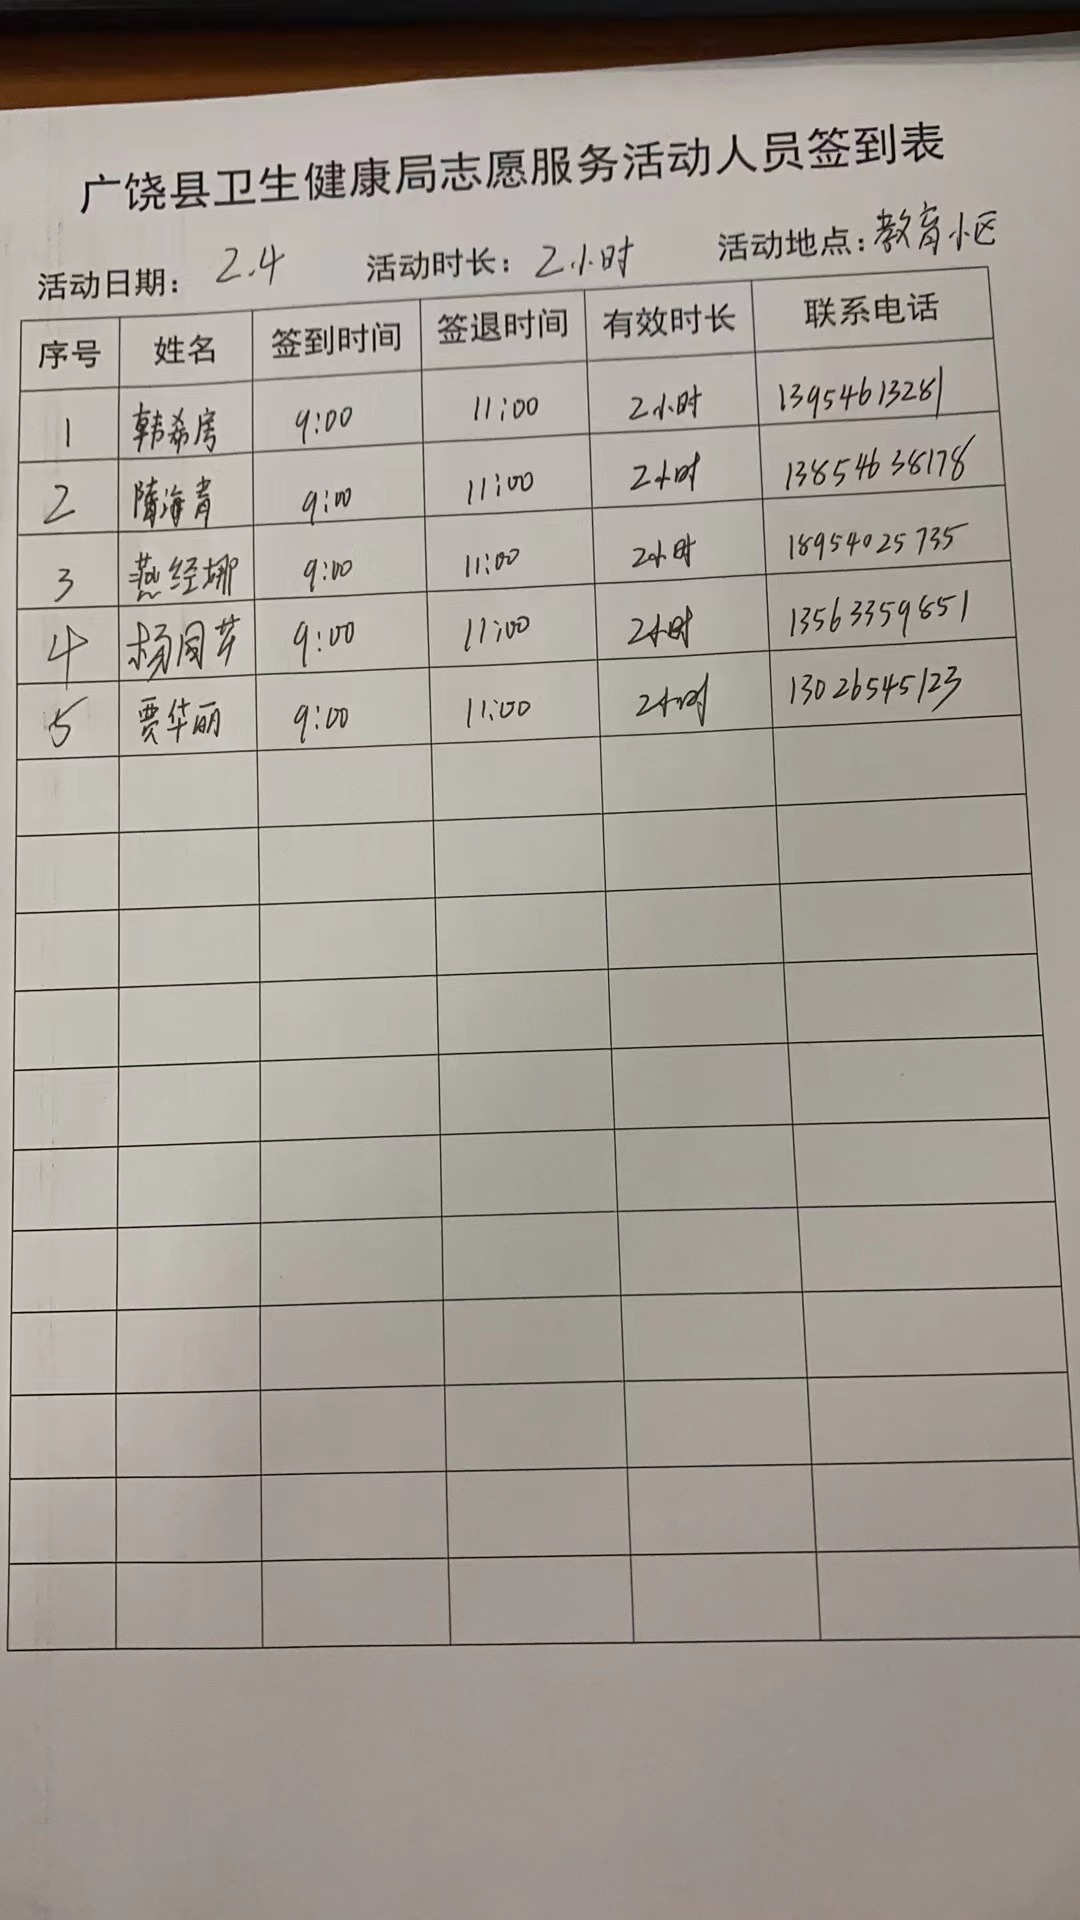 广饶县卫生健康局志愿服务活动人员签到表
活动日期: 2.4 活动时长: 2小时 活动地点: 教育小区
序号 姓名 签到时间 签退时间 有效时长 联系电话
1 韩希房 9:00 11:00 2小时 13954613281
2 隋海青 9:00 11:00 2小时 13854638178
3 燕经娜 9:00 11:00 2小时 18954025735
4 9:00 11:00 2小时 13563359851
5 贾华丽 9:00 11:00 2小时 13026545123